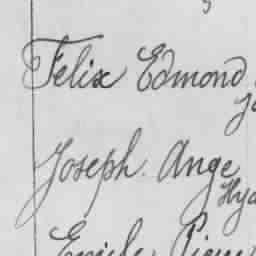 Felix Edmond
Joseph. Ange
Hya
Emile. Pierre